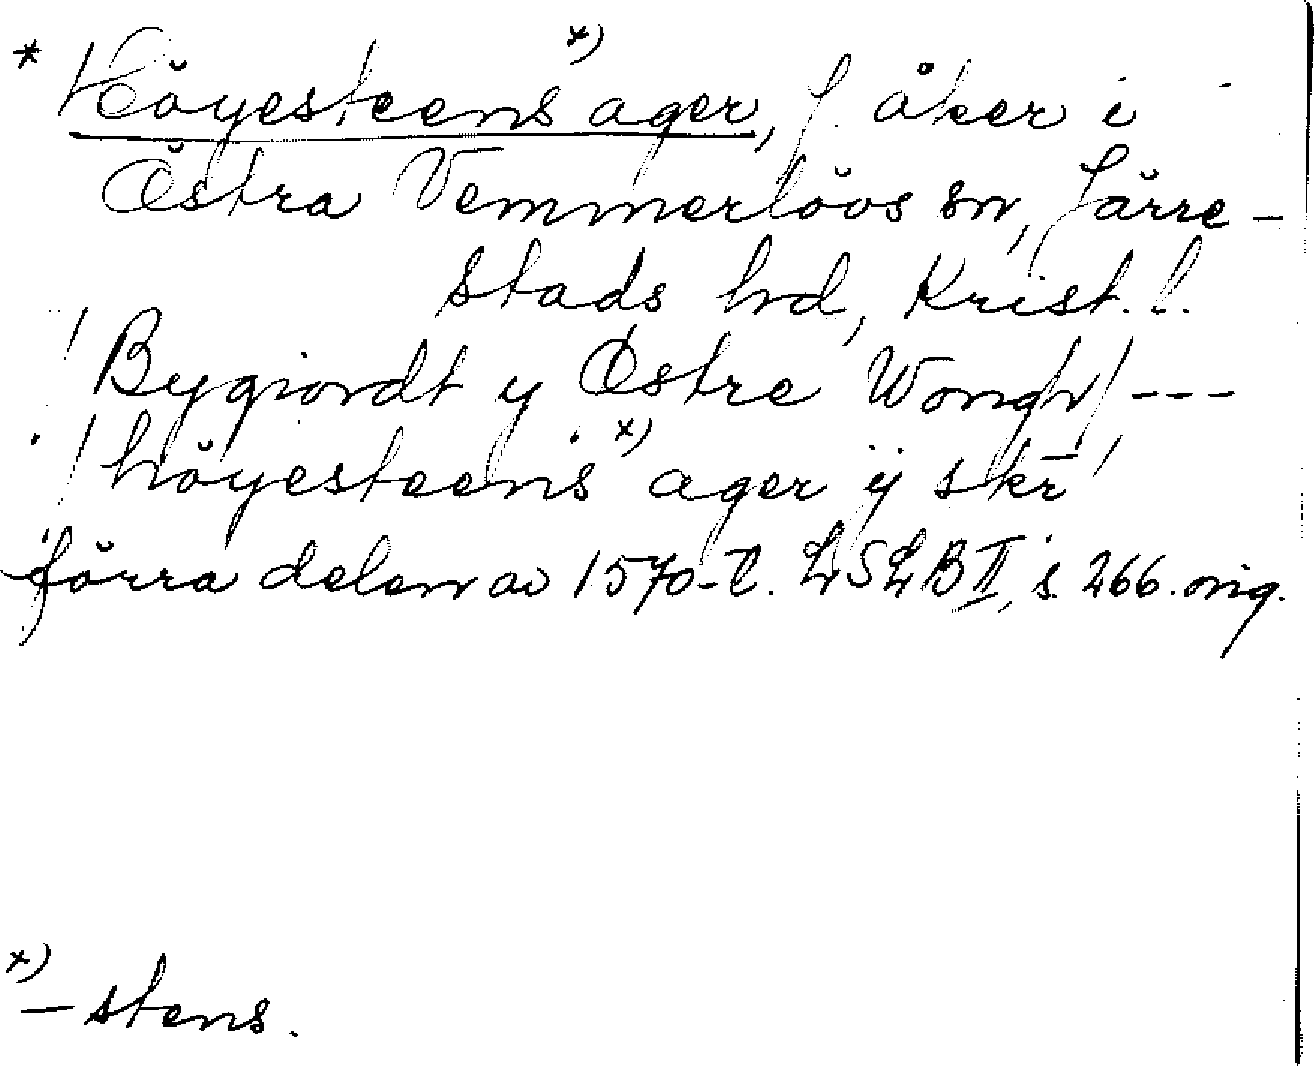 * Höyesteens x) ager, f. åker i
Östra Vemmerlövs sn, Järre-
stads hd, Krist. l.
/ Bygiordt y Östre Wongh / ---
/ höyesteens x) ager ij skr /
förra delen av 1570-t. LSLB II, s. 266. orig.
x) - stens.